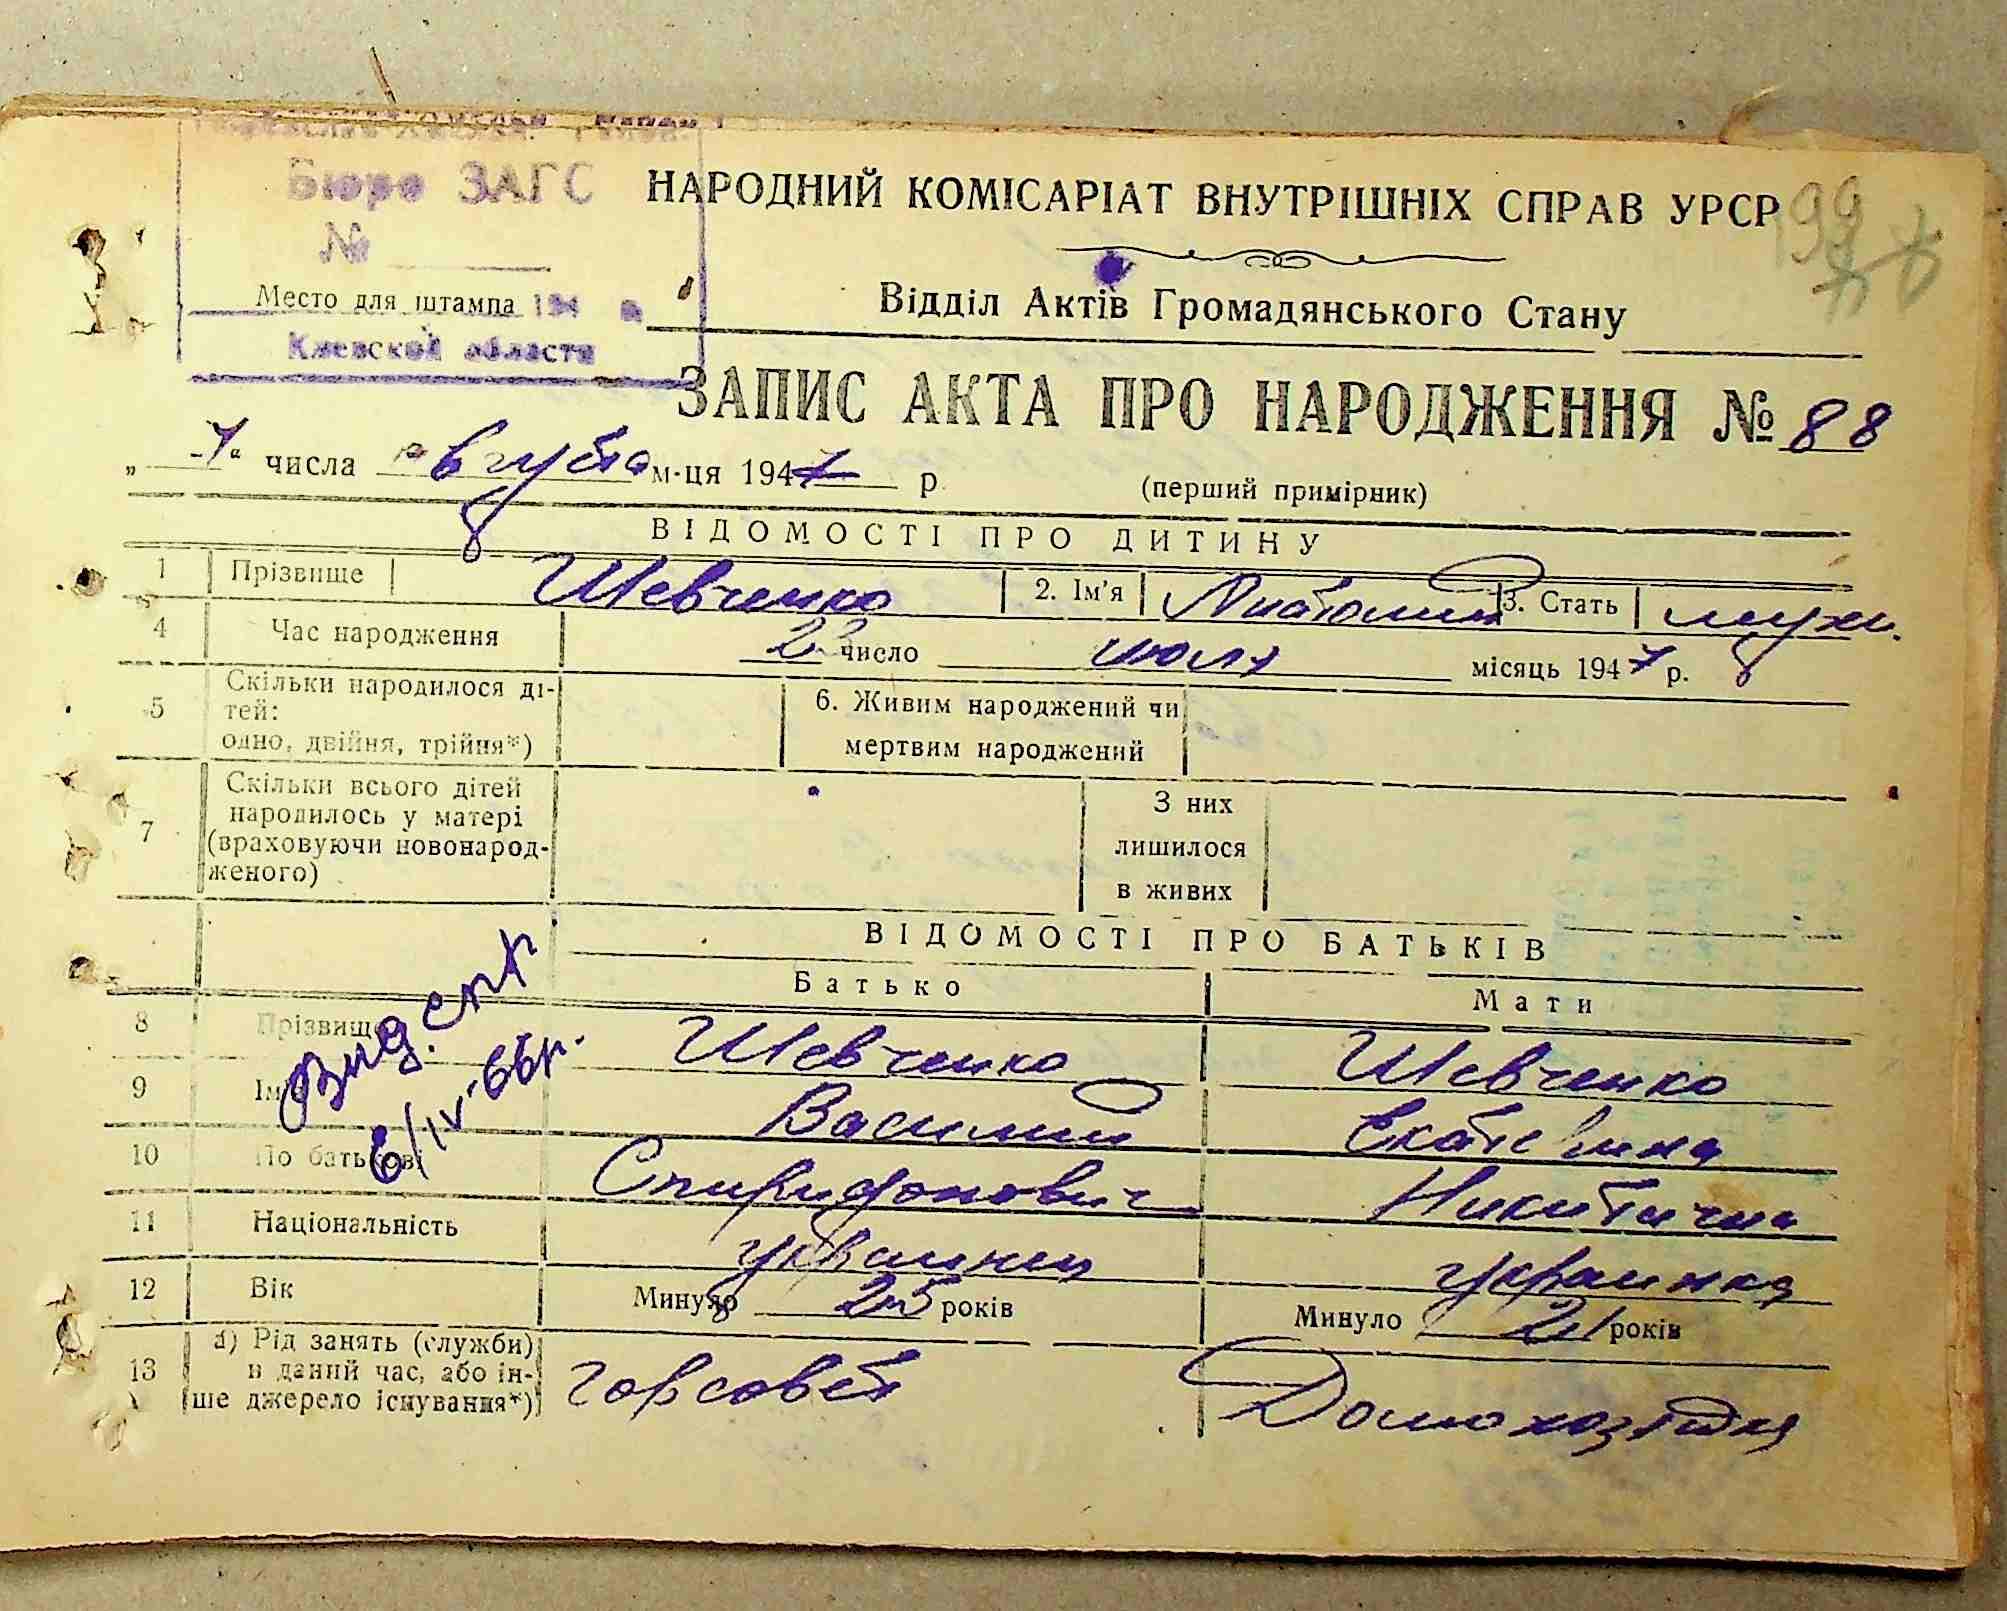 Бюро ЗАГС
№
Место для штампа 194
Киевской области
НАРОДНИЙ КОМІСАРІАТ ВНУТРІШНІХ СПРАВ УРСР
199
Відділ Актів Громадянського Стану
ЗАПИС АКТА ПРО НАРОДЖЕННЯ № 88
„ 7 “ числа августа м-ця 1947 р. (перший примірник)
ВІДОМОСТІ ПРО ДИТИНУ
1 Прізвище Шевченко 2. Ім'я Анатолий 3. Стать муж.
4 Час народження 23 число июля місяць 1947 р.
5 Скільки народилося ді-
тей:
одно, двійня, трійня*)
6. Живим народжений чи
мертвим народжений
7 Скільки всього дітей
народилось у матері
(враховуючи новонарод-
женого)
З них
лишилося
в живих
ВІДОМОСТІ ПРО БАТЬКІВ
Батько Мати
8 Прізвище Шевченко Шевченко
9 Ім'я Василий Екатерина
10 По батькові Спиридонович Никитична
11 Національність украинец украинка
12 Вік Минуло 25 років Минуло 21 років
13 а) Рід занять (служби)
в даний час, або ін-
ше джерело існування*)
горсовет Домохозяйка
6/IV-66р.